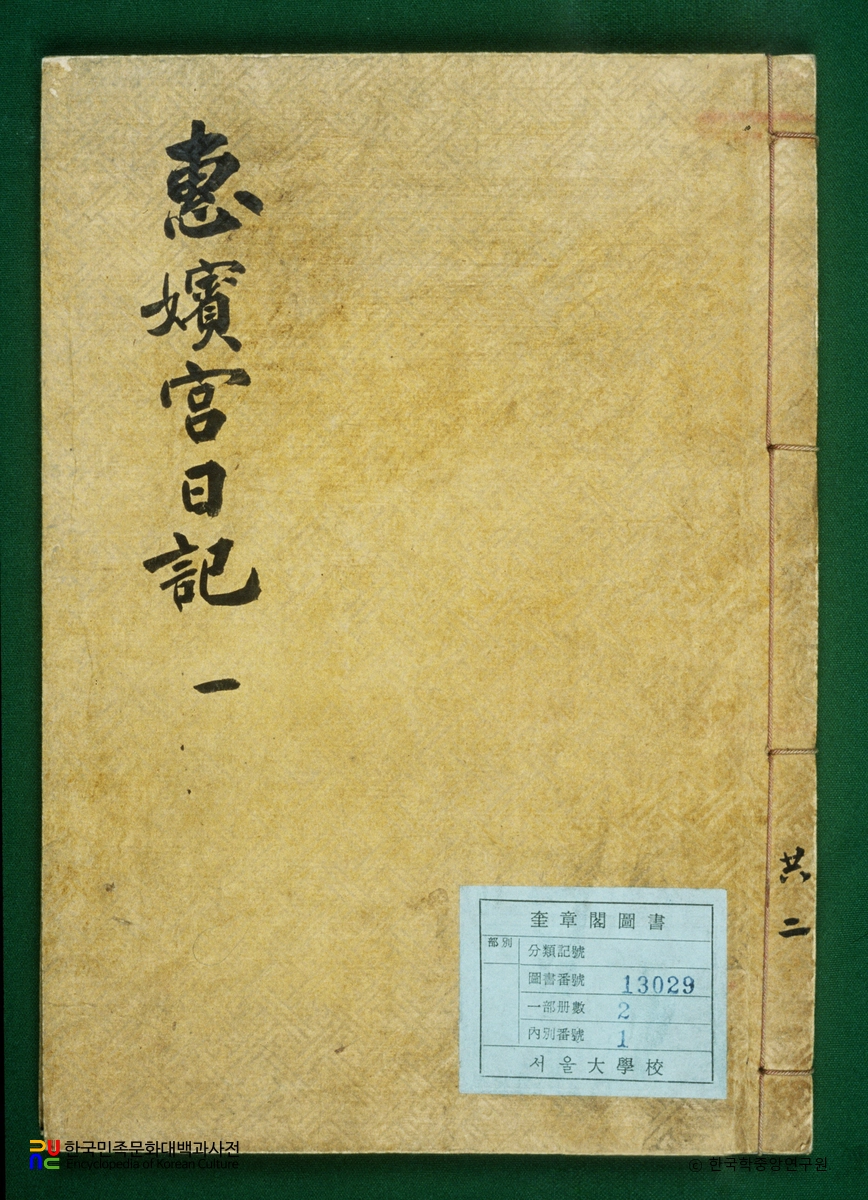 惠嬪宮日記 一
共二
奎章閣圖書
部別
分類記號
圖書番號 13029
一部册數 2
內別番號 1
서울大學校
한국민족문화대백과사전
Encyclopedia of Korean Culture
© 한국학중앙연구원